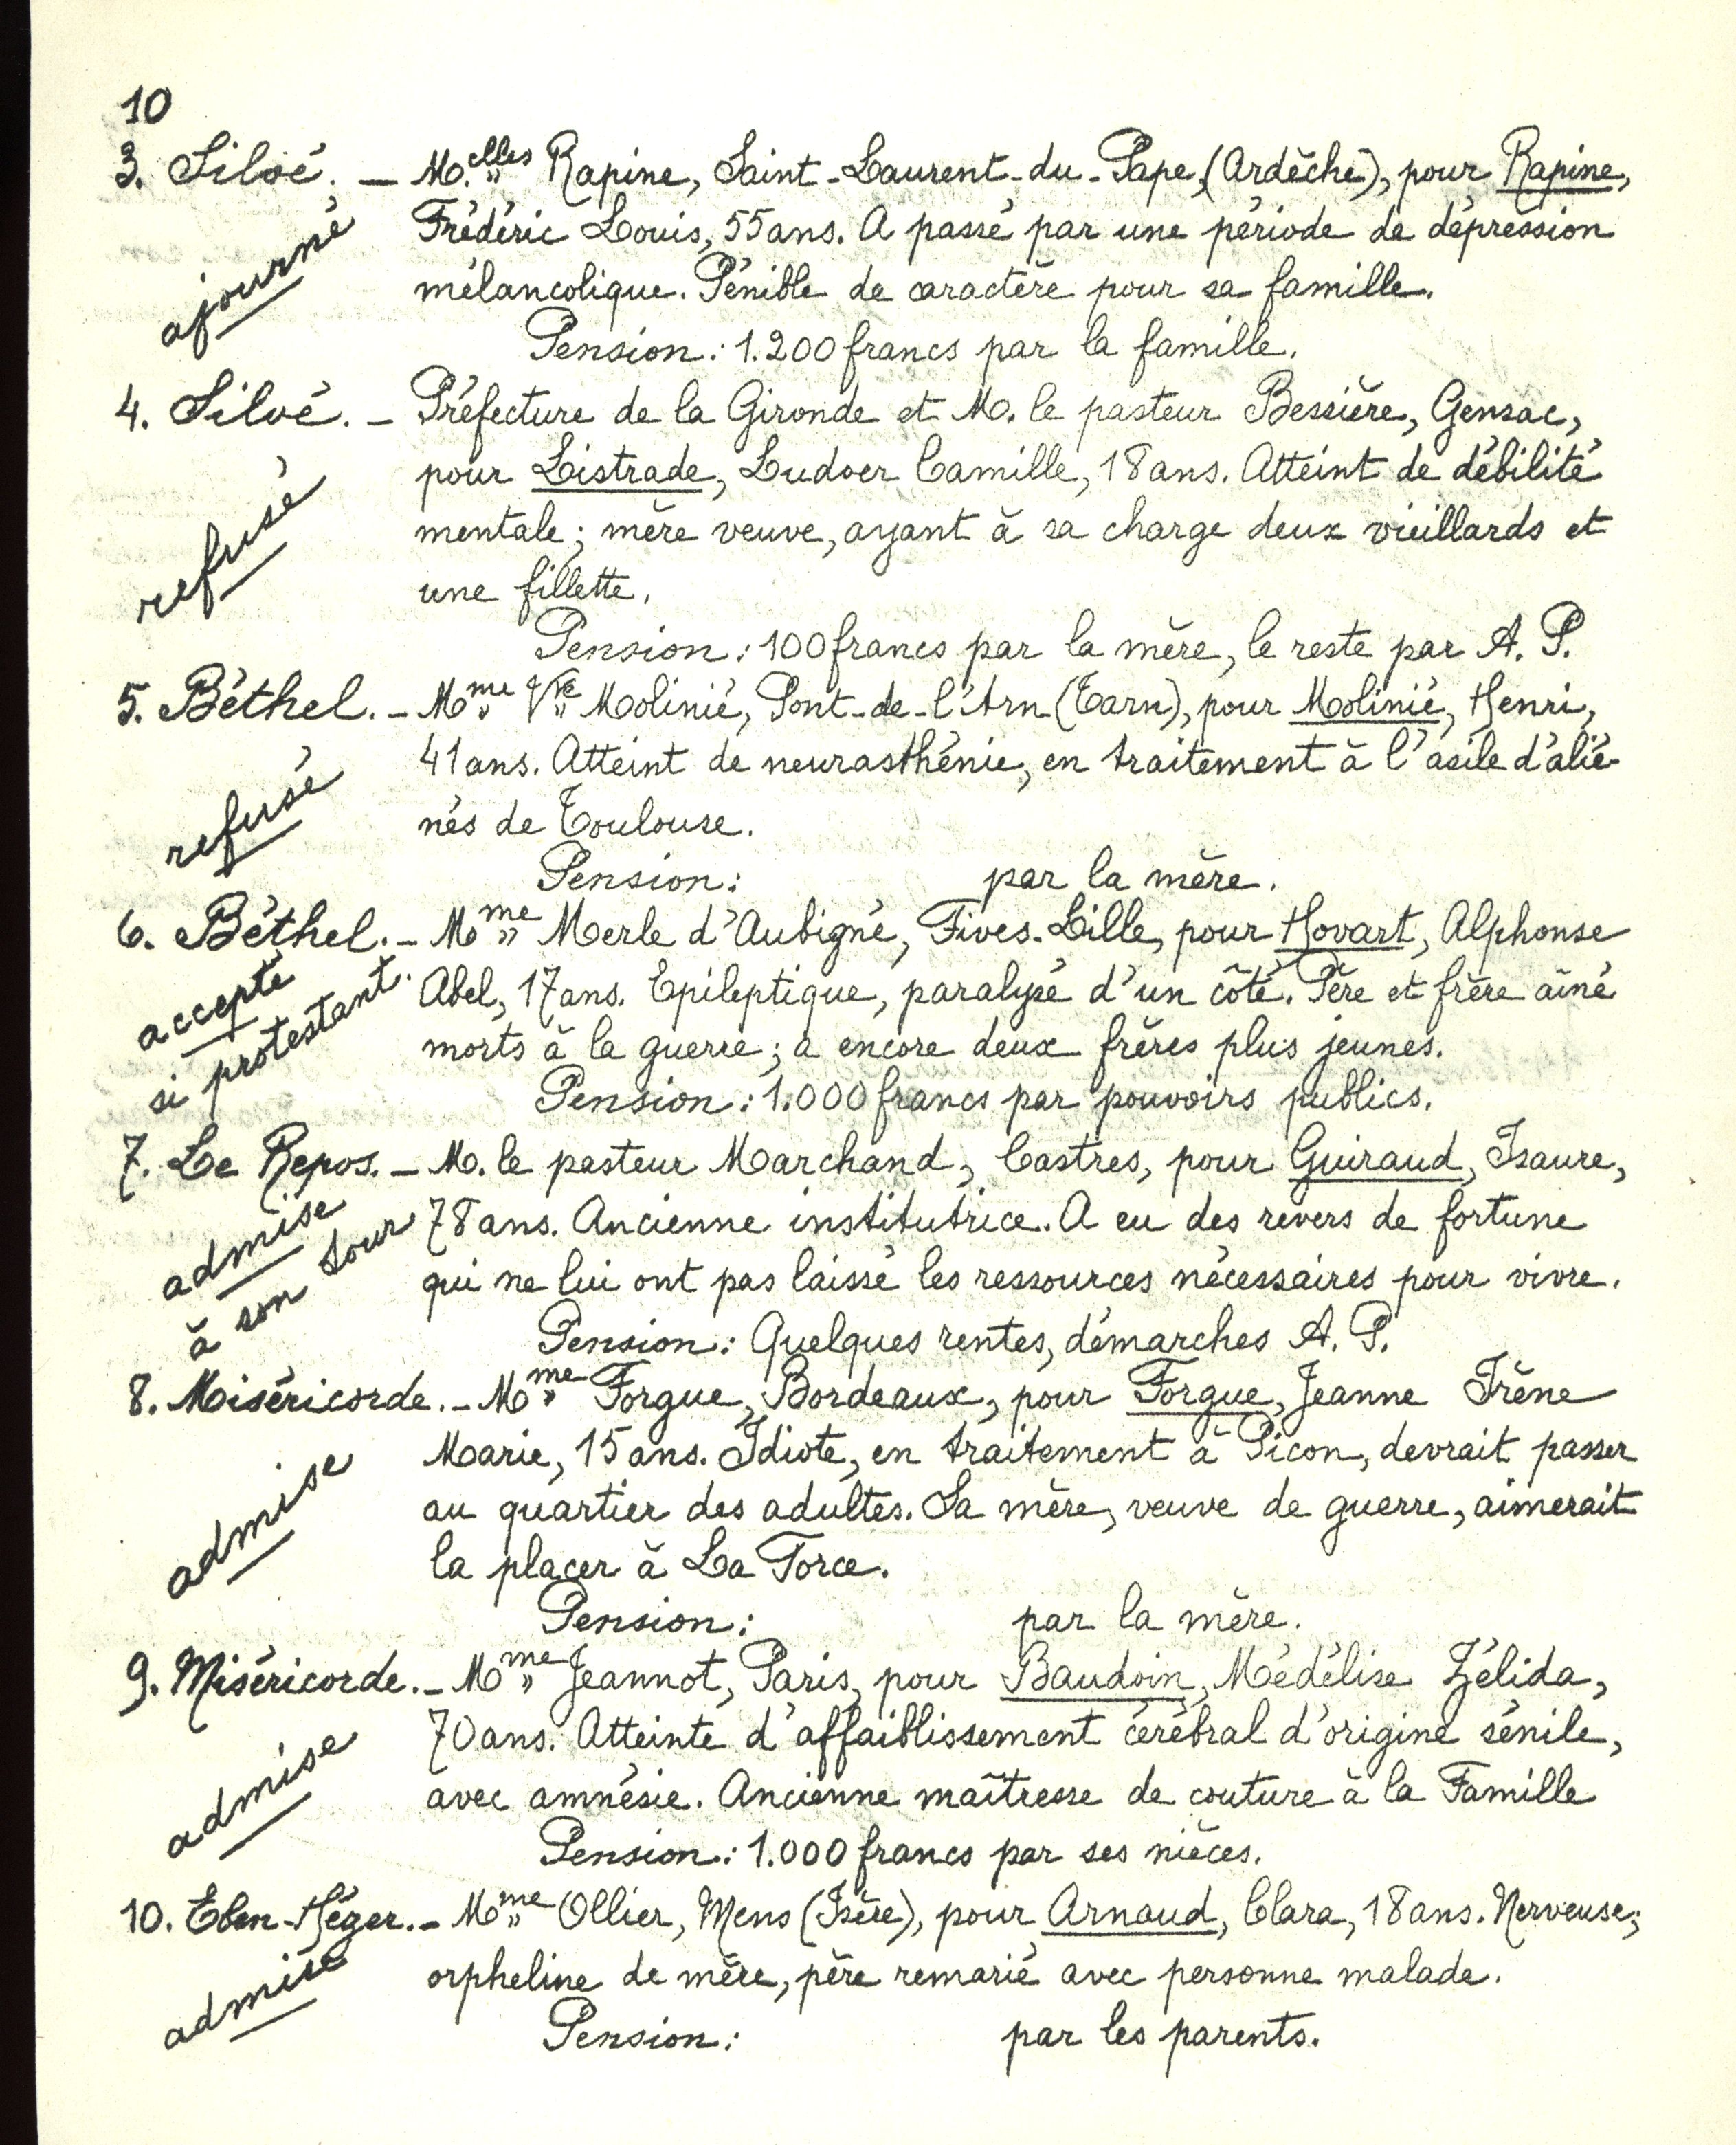 10
3. Siloé. — M.elles Rapine, Saint-Laurent-du-Pape, (Ardèche), pour Rapine,
ajourné
Frédéric Louis, 55 ans. A passé par une période de dépression
mélancolique. Pénible de caractère pour sa famille.
Pension : 1.200 francs par la famille.
4. Siloé. — Préfecture de la Gironde et M. le pasteur Bessière, Gensac,
refusé
pour Listrade, Ludoer Camille, 18 ans. Atteint de débilité
mentale ; mère veuve, ayant à sa charge deux vieillards et
une fillette.
Pension : 100 francs par la mère, le reste par A. P.
5. Béthel. — Mme Vve Molinié, Pont-de-l'Arn (Tarn), pour Molinié, Henri,
refusé
41 ans. Atteint de neurasthénie, en traitement à l'asile d'alié-
nés de Toulouse.
Pension : par la mère.
6. Béthel. — Mme Merle d'Aubigné, Fives-Lille, pour Hovart, Alphonse
accepté
si protestant.
Abel, 17 ans. Epileptique, paralysé d'un côté. Père et frère aîné
morts à la guerre ; a encore deux frères plus jeunes.
Pension : 1.000 francs par pouvoirs publics.
7. Le Repos. — M. le pasteur Marchand, Castres, pour Guiraud, Isaure,
admise
à son tour
78 ans. Ancienne institutrice. A eu des revers de fortune
qui ne lui ont pas laissé les ressources nécessaires pour vivre.
Pension : Quelques rentes, démarches A. P.
8. Miséricorde. — Mme Forgue, Bordeaux, pour Forgue, Jeanne Irène
admise
Marie, 15 ans. Idiote, en traitement à Picon, devrait passer
au quartier des adultes. Sa mère, veuve de guerre, aimerait
la placer à La Force.
Pension : par la mère.
9. Miséricorde. — Mme Jeannot, Paris, pour Baudoin, Médélise Zélida,
admise
70 ans. Atteinte d'affaiblissement cérébral d'origine sénile,
avec amnésie. Ancienne maîtresse de couture à la Famille
Pension : 1.000 francs par ses nièces.
10. Eben-Hézer. — Mme Ollier, Mens (Isère), pour Arnaud, Clara, 18 ans. Nerveuse ;
admise
orpheline de mère, père remarié avec personne malade.
Pension : par les parents.